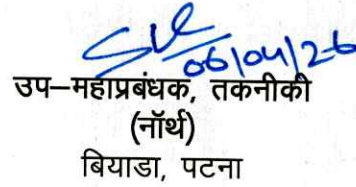 06/04/26
उप–महाप्रबंधक, तकनीकी
(नॉर्थ)
बियाडा, पटना